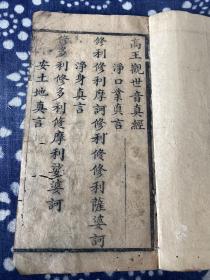 高王觀世音真經
淨口業真言
修利修利摩訶修利修修利薩婆訶
淨身真言
修多利修多利修摩利娑婆訶
安土地真言